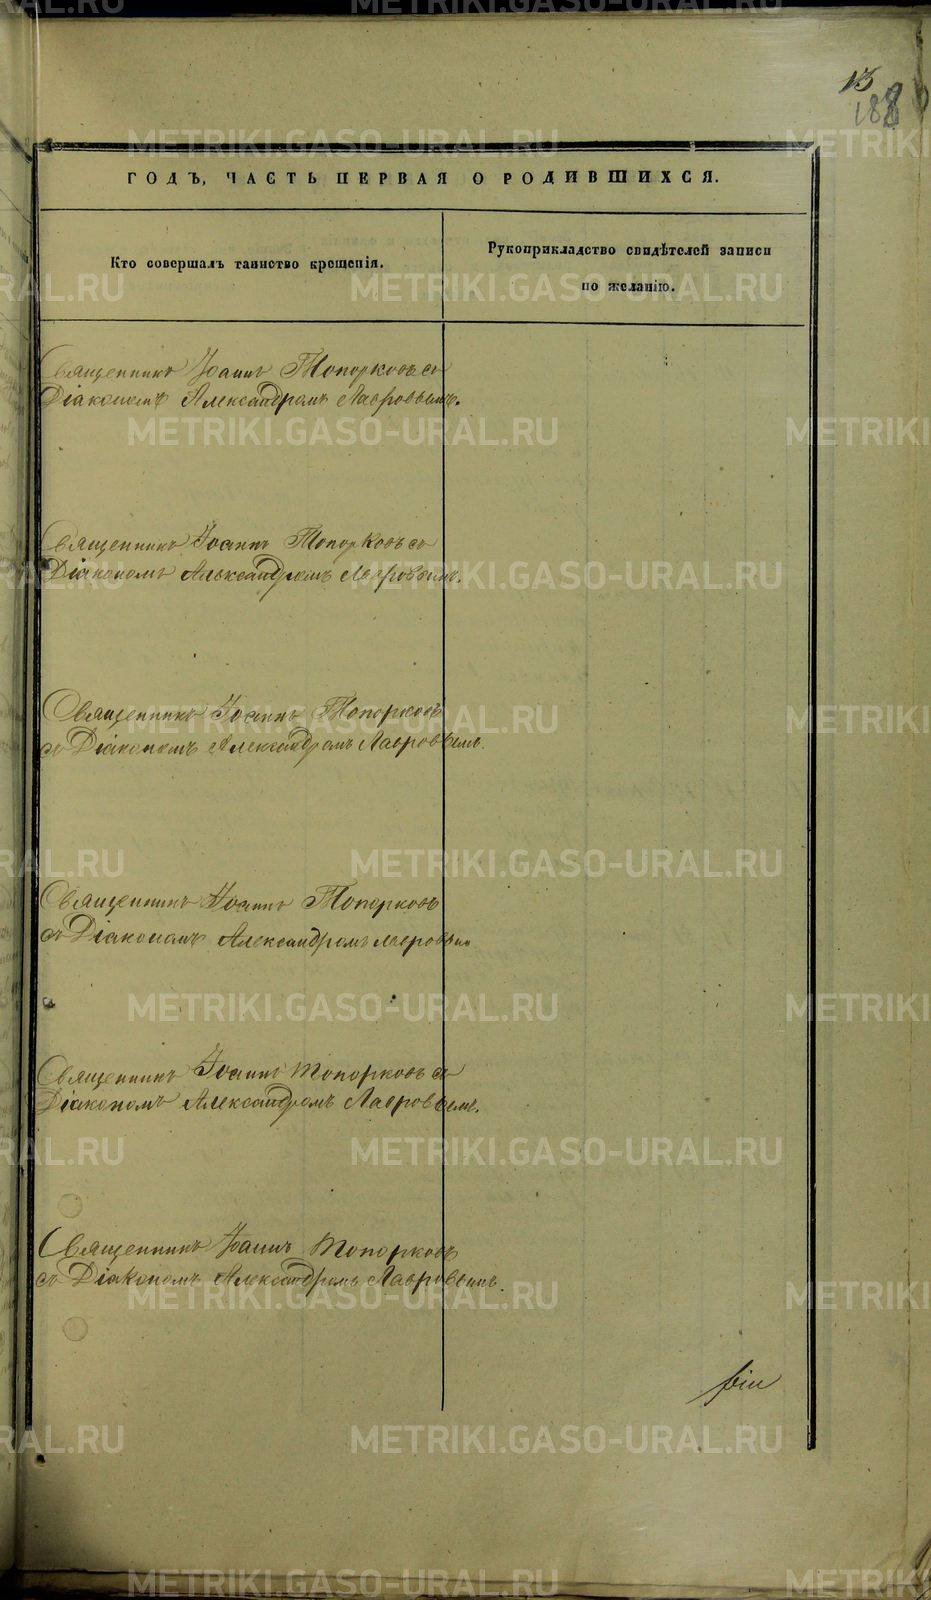 13
188
ГОДЪ, ЧАСТЬ ПЕРВАЯ О РОДИВШИХСЯ.
Кто совершалъ таинство крещенія.
Рукоприкладство свидѣтелей записи
по желанію.
Священникъ Іоаннъ Топорковъ съ
Діакономъ Александромъ Лавровымъ.
Священникъ Іоаннъ Топорковъ съ
Діакономъ Александромъ Лавровымъ.
Священникъ Іоаннъ Топорковъ
съ Діакономъ Александромъ Лавровымъ.
Священникъ Іоаннъ Топорковъ
съ Діакономъ Александромъ Лавровым
Священникъ Іоаннъ Топорковъ съ
Діакономъ Александромъ Лавровымъ.
Священникъ Іоаннъ Топорковъ
съ Діакономъ Александромъ Лавровымъ.
METRIKI.GASO-URAL.RU